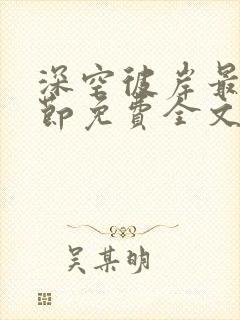 深空彼岸最
节免费全文
吴某明